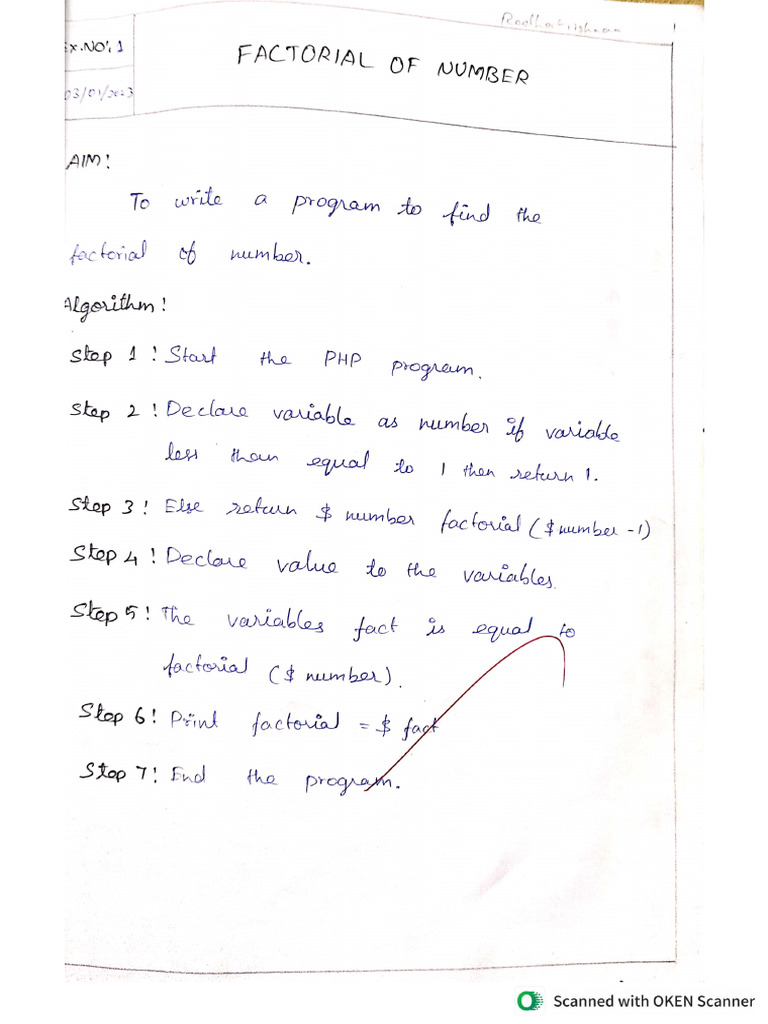 Radhakrishnan
1
Ex.No: 1
FACTORIAL OF NUMBER
03/01/2023
AIM:
To write a program to find the
factorial of number.
Algorithm:
Step 1: Start the PHP program.
Step 2: Declare variable as number if variable
less than equal to 1 then return 1.
Step 3: Else return $ number factorial ($number -1)
Step 4: Declare value to the variables.
Step 5: The variables fact is equal to
factorial ($ number).
Step 6: Print factorial = $ fact
Step 7: End the program.
Scanned with OKEN Scanner